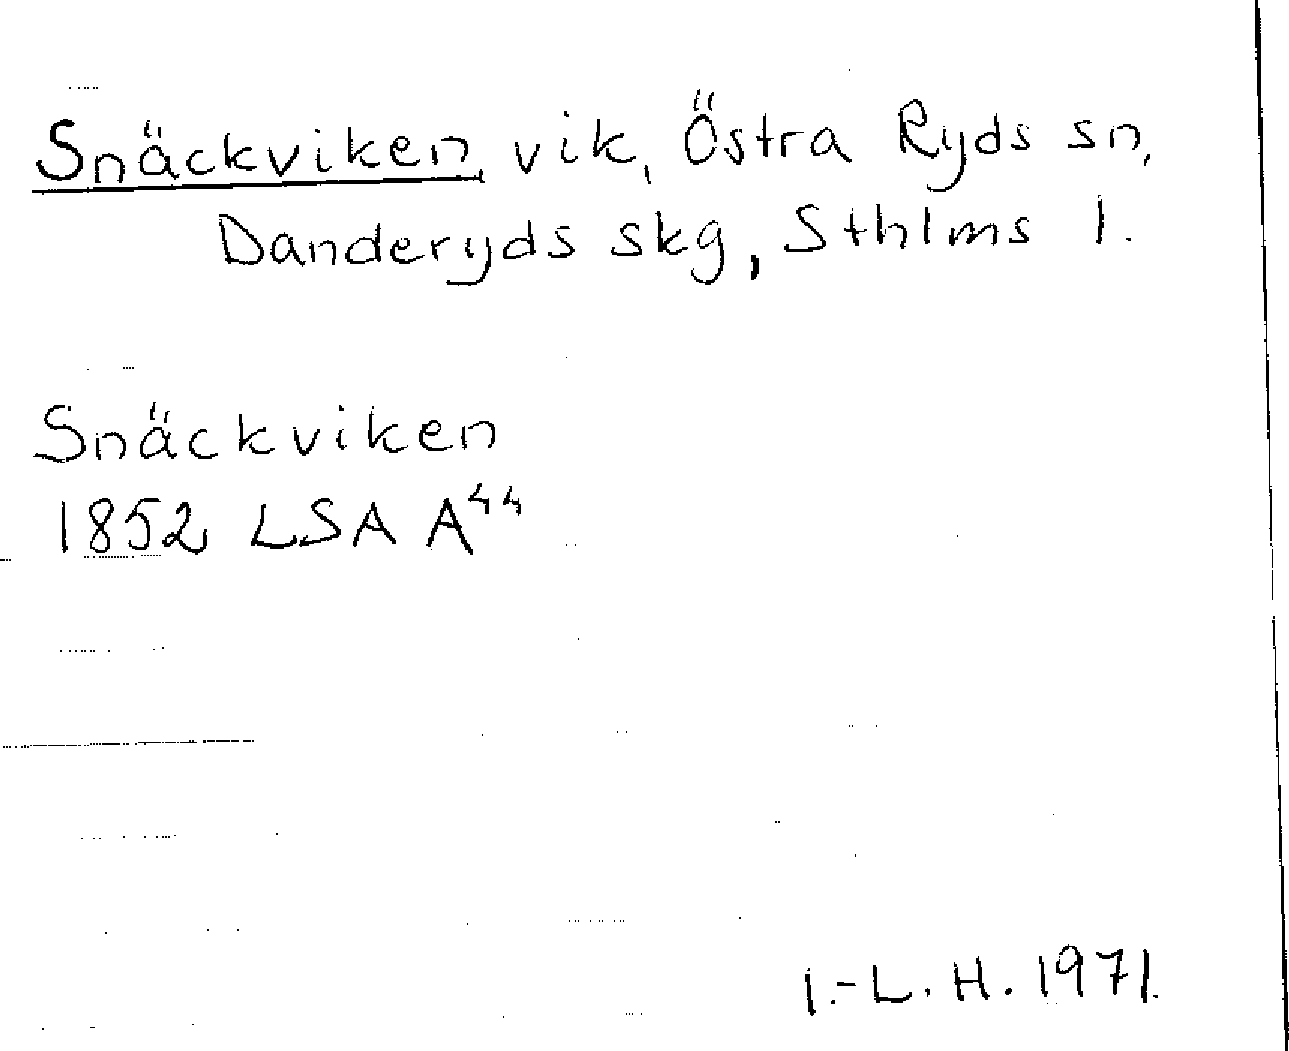 Snäckviken, vik, Östra Ryds sn,
Danderyds skg, Sthlms l.
Snäckviken
1852 LSA A⁴⁴
I.-L. H. 1971.